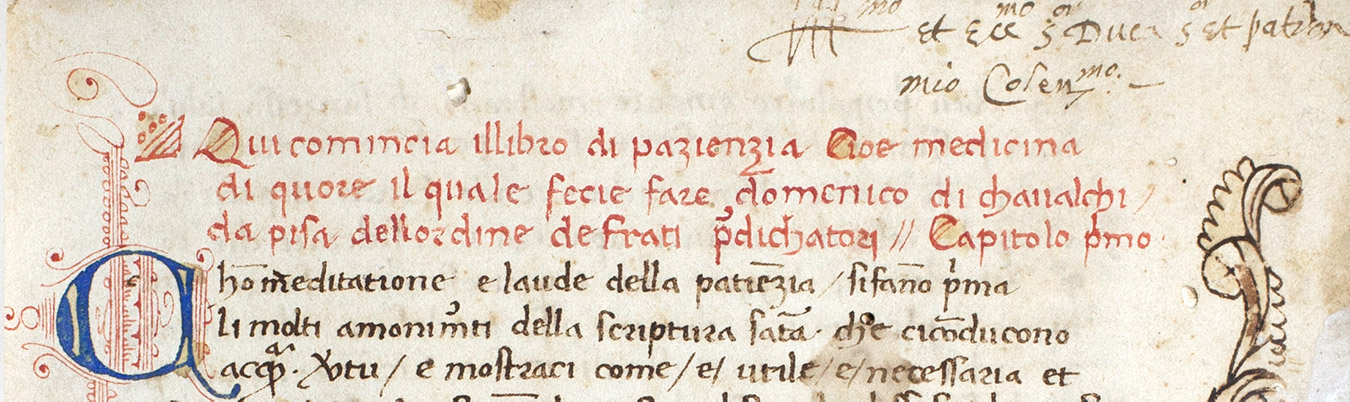 et ecc^mo s^or Duca s^or et patron
mio Colen^mo.
Qui comincia illibro di pazienzia Cioe medicina
di quore il quale fecie fare domenico di chaualchi /
da pisa dellordine de frati p̄dichatori // Capitolo pr̄mo
meditatione e laude della patiēzia / si fano pr̄ma
li molti amonimēti della scriptura sāta. che ci cōducono
e mostraci come / e / utile / e / necessaria et